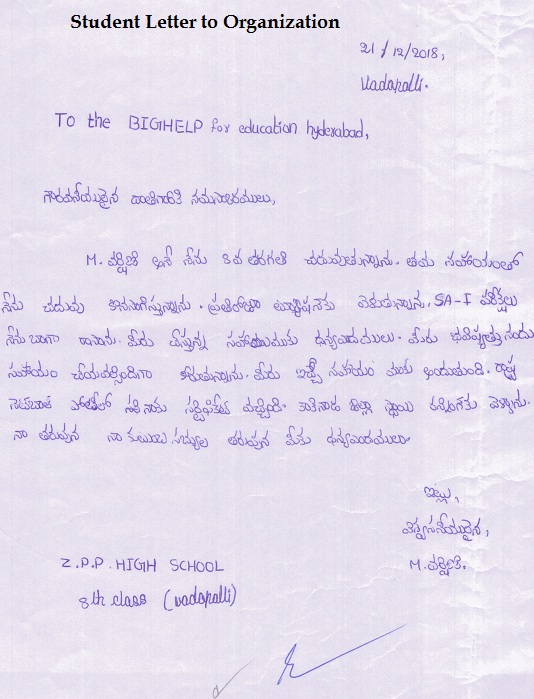 Student Letter to Organization
21/12/2018,
Vadapalli.
To the BIGHELP for education hyderabad,
గౌరవనీయులైన దాతగారికి నమస్కారములు,
M. వర్షిణి అనే నేను 8వ తరగతి చదువుతున్నాను. తమ సహాయంతో
నేను చదువు కొనసాగిస్తున్నాను. ప్రతిరోజూ ట్యూషన్‌కు వెళుతున్నాను. SA-I పరీక్షలు
నేను బాగా రాసాను. మీరు చేస్తున్న సహాయముకు ధన్యవాదములు. మీరు భవిష్యత్తునందు
సహాయం చేయవల్సిందిగా కోరుతున్నాను. మీరు ఇచ్చే సహాయం మాకు అందుతుంది.
నాకు సర్టిఫికేట్ వచ్చింది. జిల్లా స్థాయి వెళ్ళాను.
నా తరుపున నా కుటుంబ సభ్యుల తరుపున మీకు ధన్యవాదములు.
ఇట్లు,
విశ్వసనీయులైన,
M. వర్షిణి.
Z.P.P. HIGH SCHOOL
8th class (vadapalli)